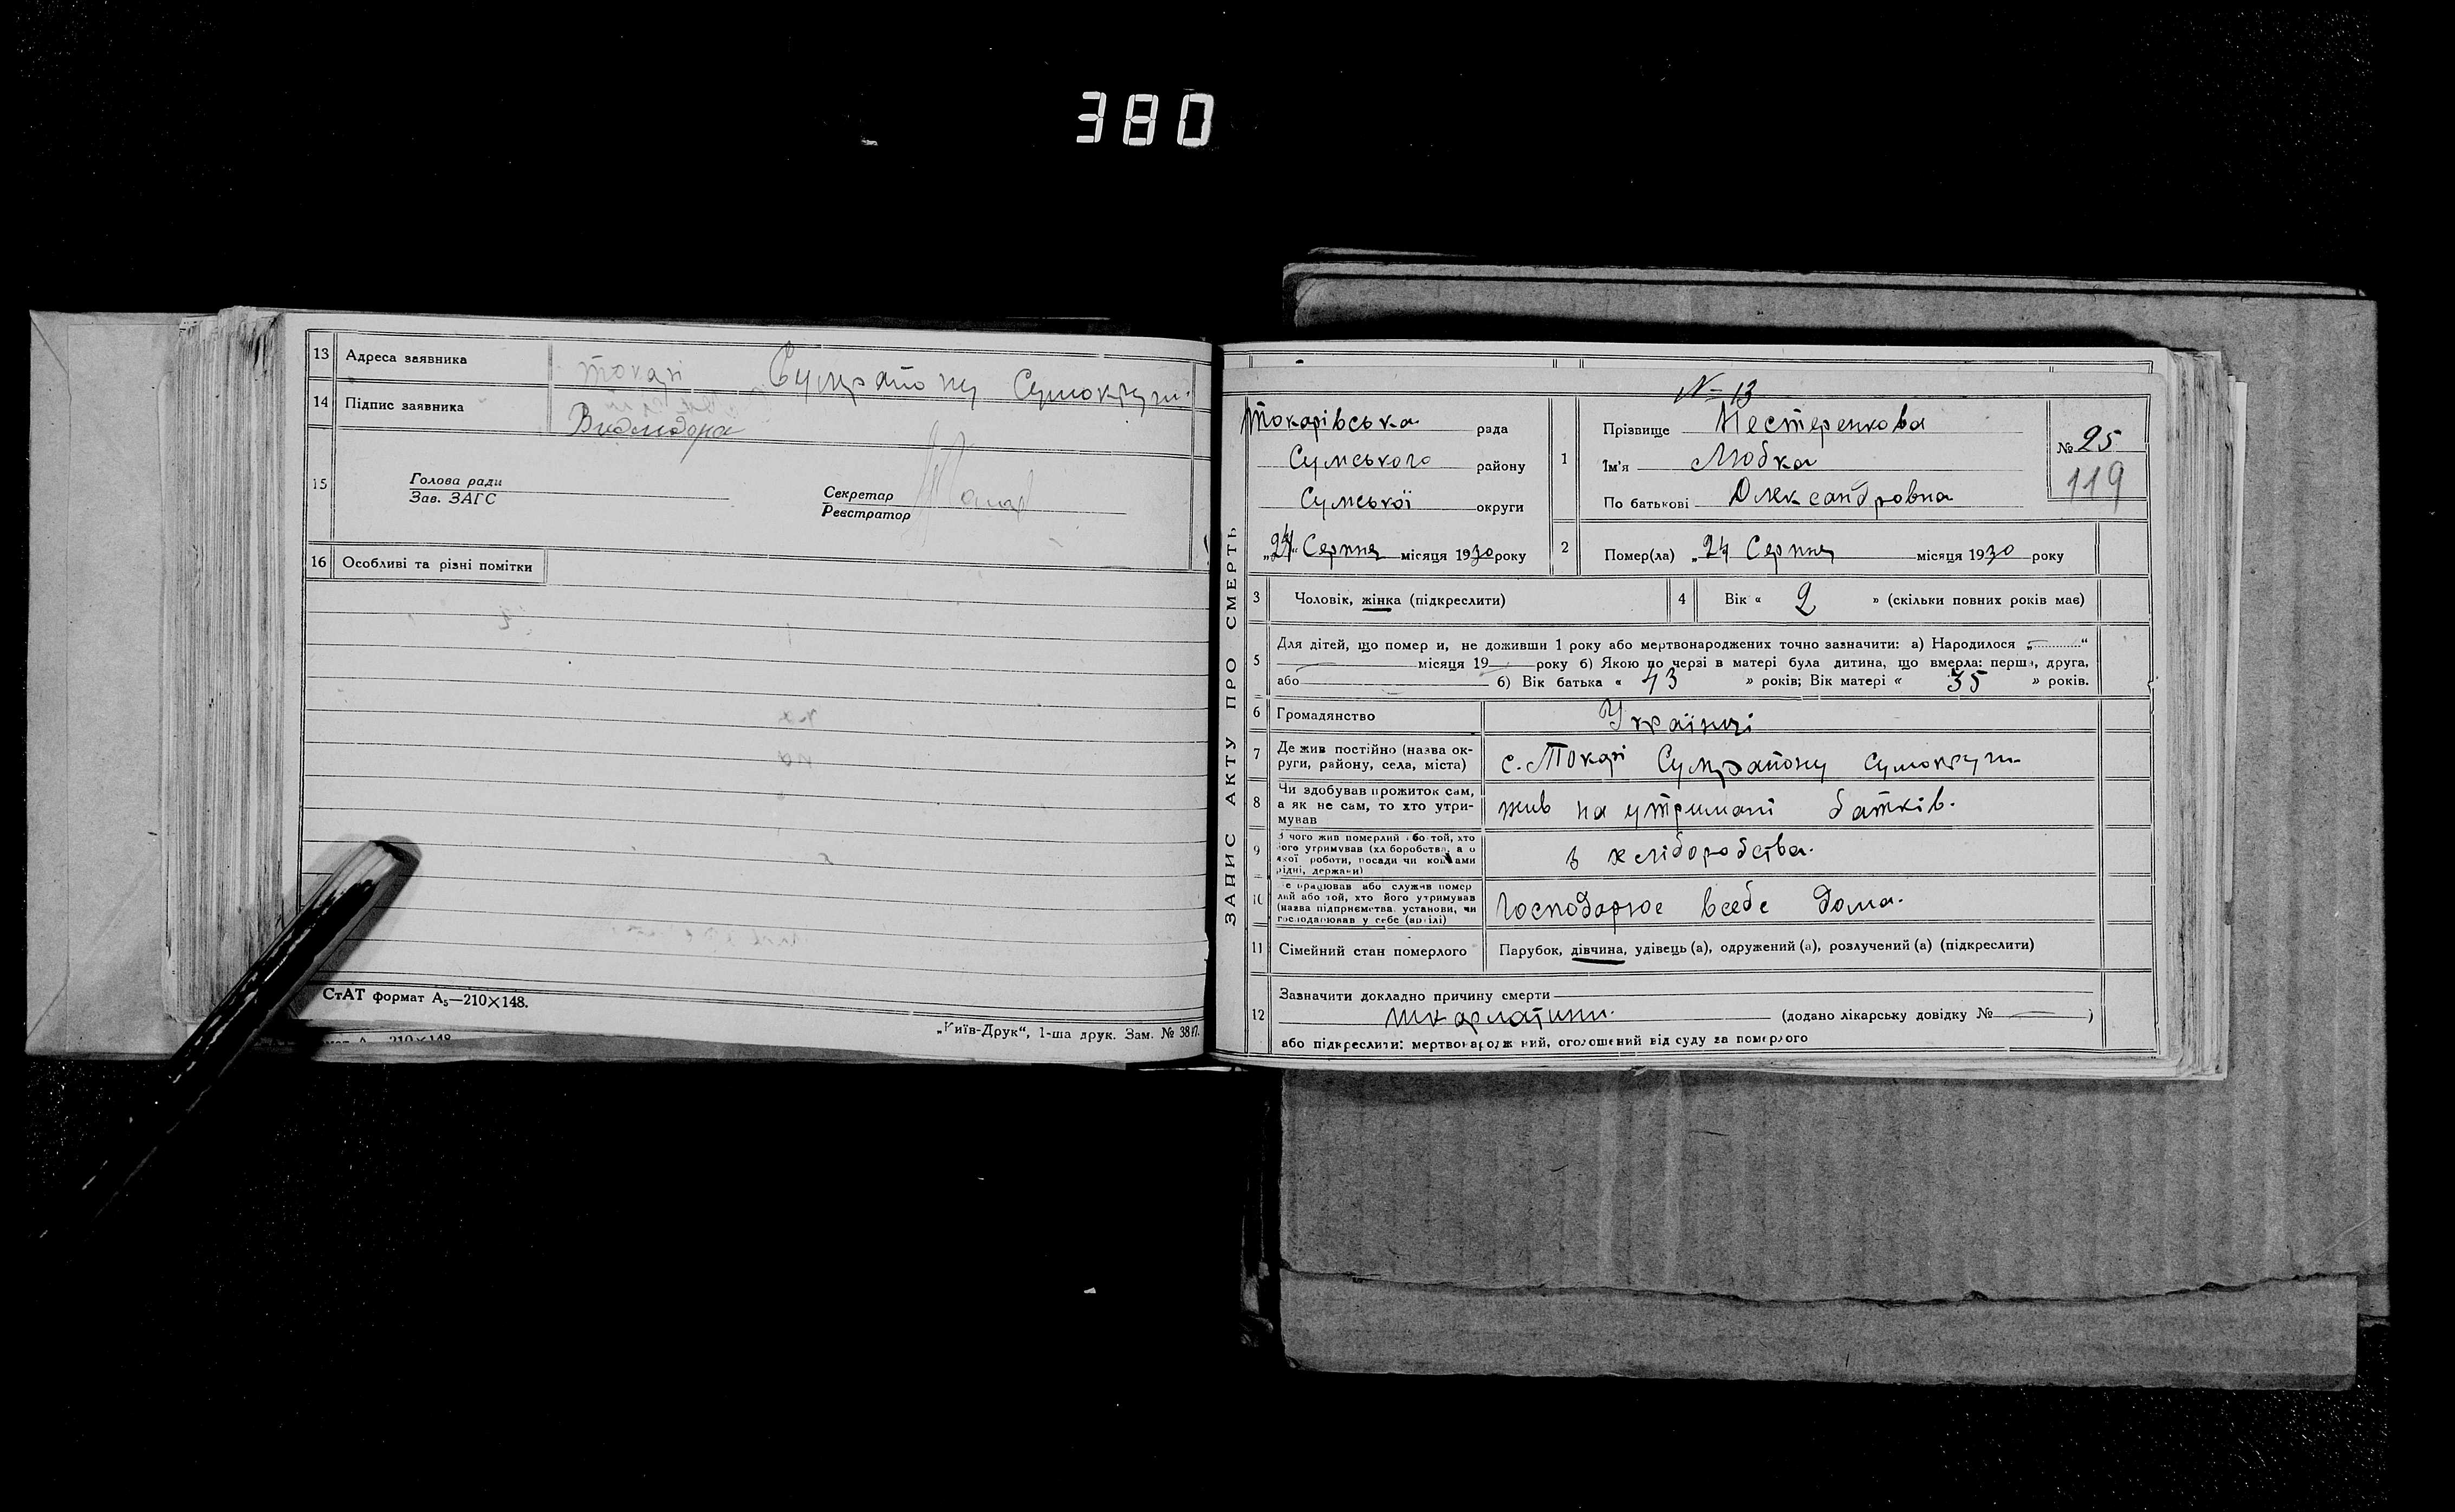 380
13 Адреса заявника Токарі Сумрайону Сумокруги.
14 Підпис заявника
15 Голова ради
Зав. ЗАГС
Секретар
Реєстратор
16 Особливі та різні помітки
СтАТ формат А5—210×148.
„Київ-Друк“, 1-ша друк. Зам. № 3817.
ЗАПИС АКТУ ПРО СМЕРТЬ
№ 13
Токарівська рада
Сумського району
Сумської округи
„24“ Серпня місяця 1930 року
1 Прізвище Нестеренкова
Ім'я Любка
По батькові Олександровна
№ 25
119
2 Помер(ла) „24 Серпня місяця 1930 року
3 Чоловік, жінка (підкреслити)
4 Вік « 2 » (скільки повних років має)
5 Для дітей, що померли, не доживши 1 року або мертвонароджених точно зазначити: а) Народилося „ “
місяця 19 року б) Якою по черзі в матері була дитина, що вмерла: перша, друга,
або б) Вік батька « 43 » років; Вік матері « 35 » років.
6 Громадянство Українці
7 Де жив постійно (назва округи, району, села, міста) с. Токарі Сумрайону Сумокруги
8 Чи здобував прожиток сам, а як не сам, то хто утримував жив на утримані батків.
9 З чого жив померлий або той, хто його утримував (хліборобства, а о якої роботи, посади чи коштами рідні, держави) з хліборобства.
10 Де працював або служив померлий або той, хто його утримував (назва підприємства, установи, чи господарював у себе (артілі) Господарює всебе дома.
11 Сімейний стан померлого Парубок, дівчина, удівець(а), одружений(а), розлучений(а) (підкреслити)
12 Зазначити докладно причину смерти
шкарлатини. (додано лікарську довідку № )
або підкреслити: мертвонароджений, оголошений від суду за померлого